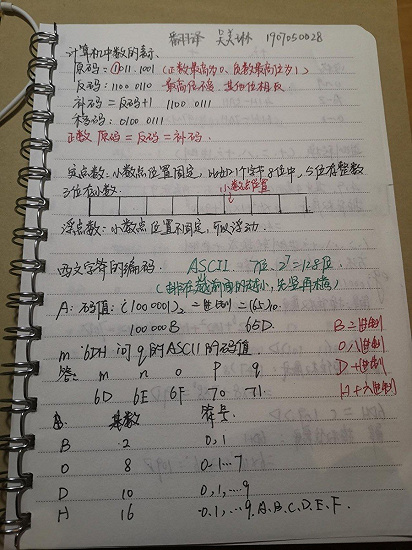 翻译 吴美林 1907050028
计算机中数的表示.
原码 = ①011.1001 (正数最高为0、负数最高位为1)
反码: 1100 0110 最高位不变. 其他位相反
补码 = 反码+1 1100 0111
移码: 0100 0111
正数 原码 = 反码 = 补码.
定点数: 小数点位置固定, 比如1个字节8位中, 5位存整数
3位存小数. 小数点位置
浮点数: 小数点位置不固定, 可以浮动
西文字符的编码. ASCII. 7位. 2^7 = 128位.
A: 码值: (1000001)₂ 二进制 = (65)₁₀
100000B 65D. B 二进制
m 6DH 问 q 的ASCII的码值. O 八进制
答: m n o p q D 十进制
6D 6E 6F 70 71 H 十六进制
基数 符号
B 2 0,1
O 8 0.1...7
D 10 0,1,...9
H 16 0.1,...9.A.B.C.D.E.F.